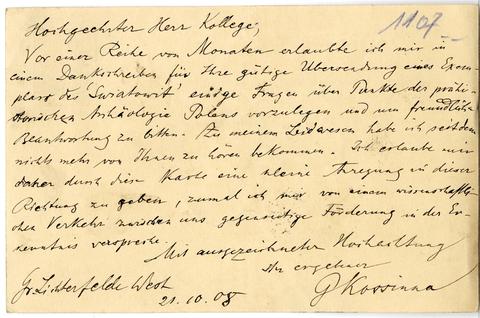 1107
Hochgeehrter Herr Kollege,
Vor einer Reihe von Monaten erlaubte ich mir in
einem Dankschreiben für Ihre gütige Übersendung eines Exem-
plars des 'Swiatowit' einige Fragen über Punkte der prähi-
storischen Archäologie Polens vorzulegen und um freundliche
Beantwortung zu bitten. Zu meinem Leidwesen habe ich seitdem
nichts mehr von Ihnen zu hören bekommen. Ich erlaube mir
daher durch diese Karte eine kleine Anregung in dieser
Richtung zu geben, zumal ich mir von einem wissenschaftli-
chen Verkehr zwischen uns gegenseitige Förderung in der Er-
kenntnis verspreche.
Mit ausgezeichneter Hochachtung
Ihr ergebener
G Kossinna
Gr. Lichterfelde West
21.10.08